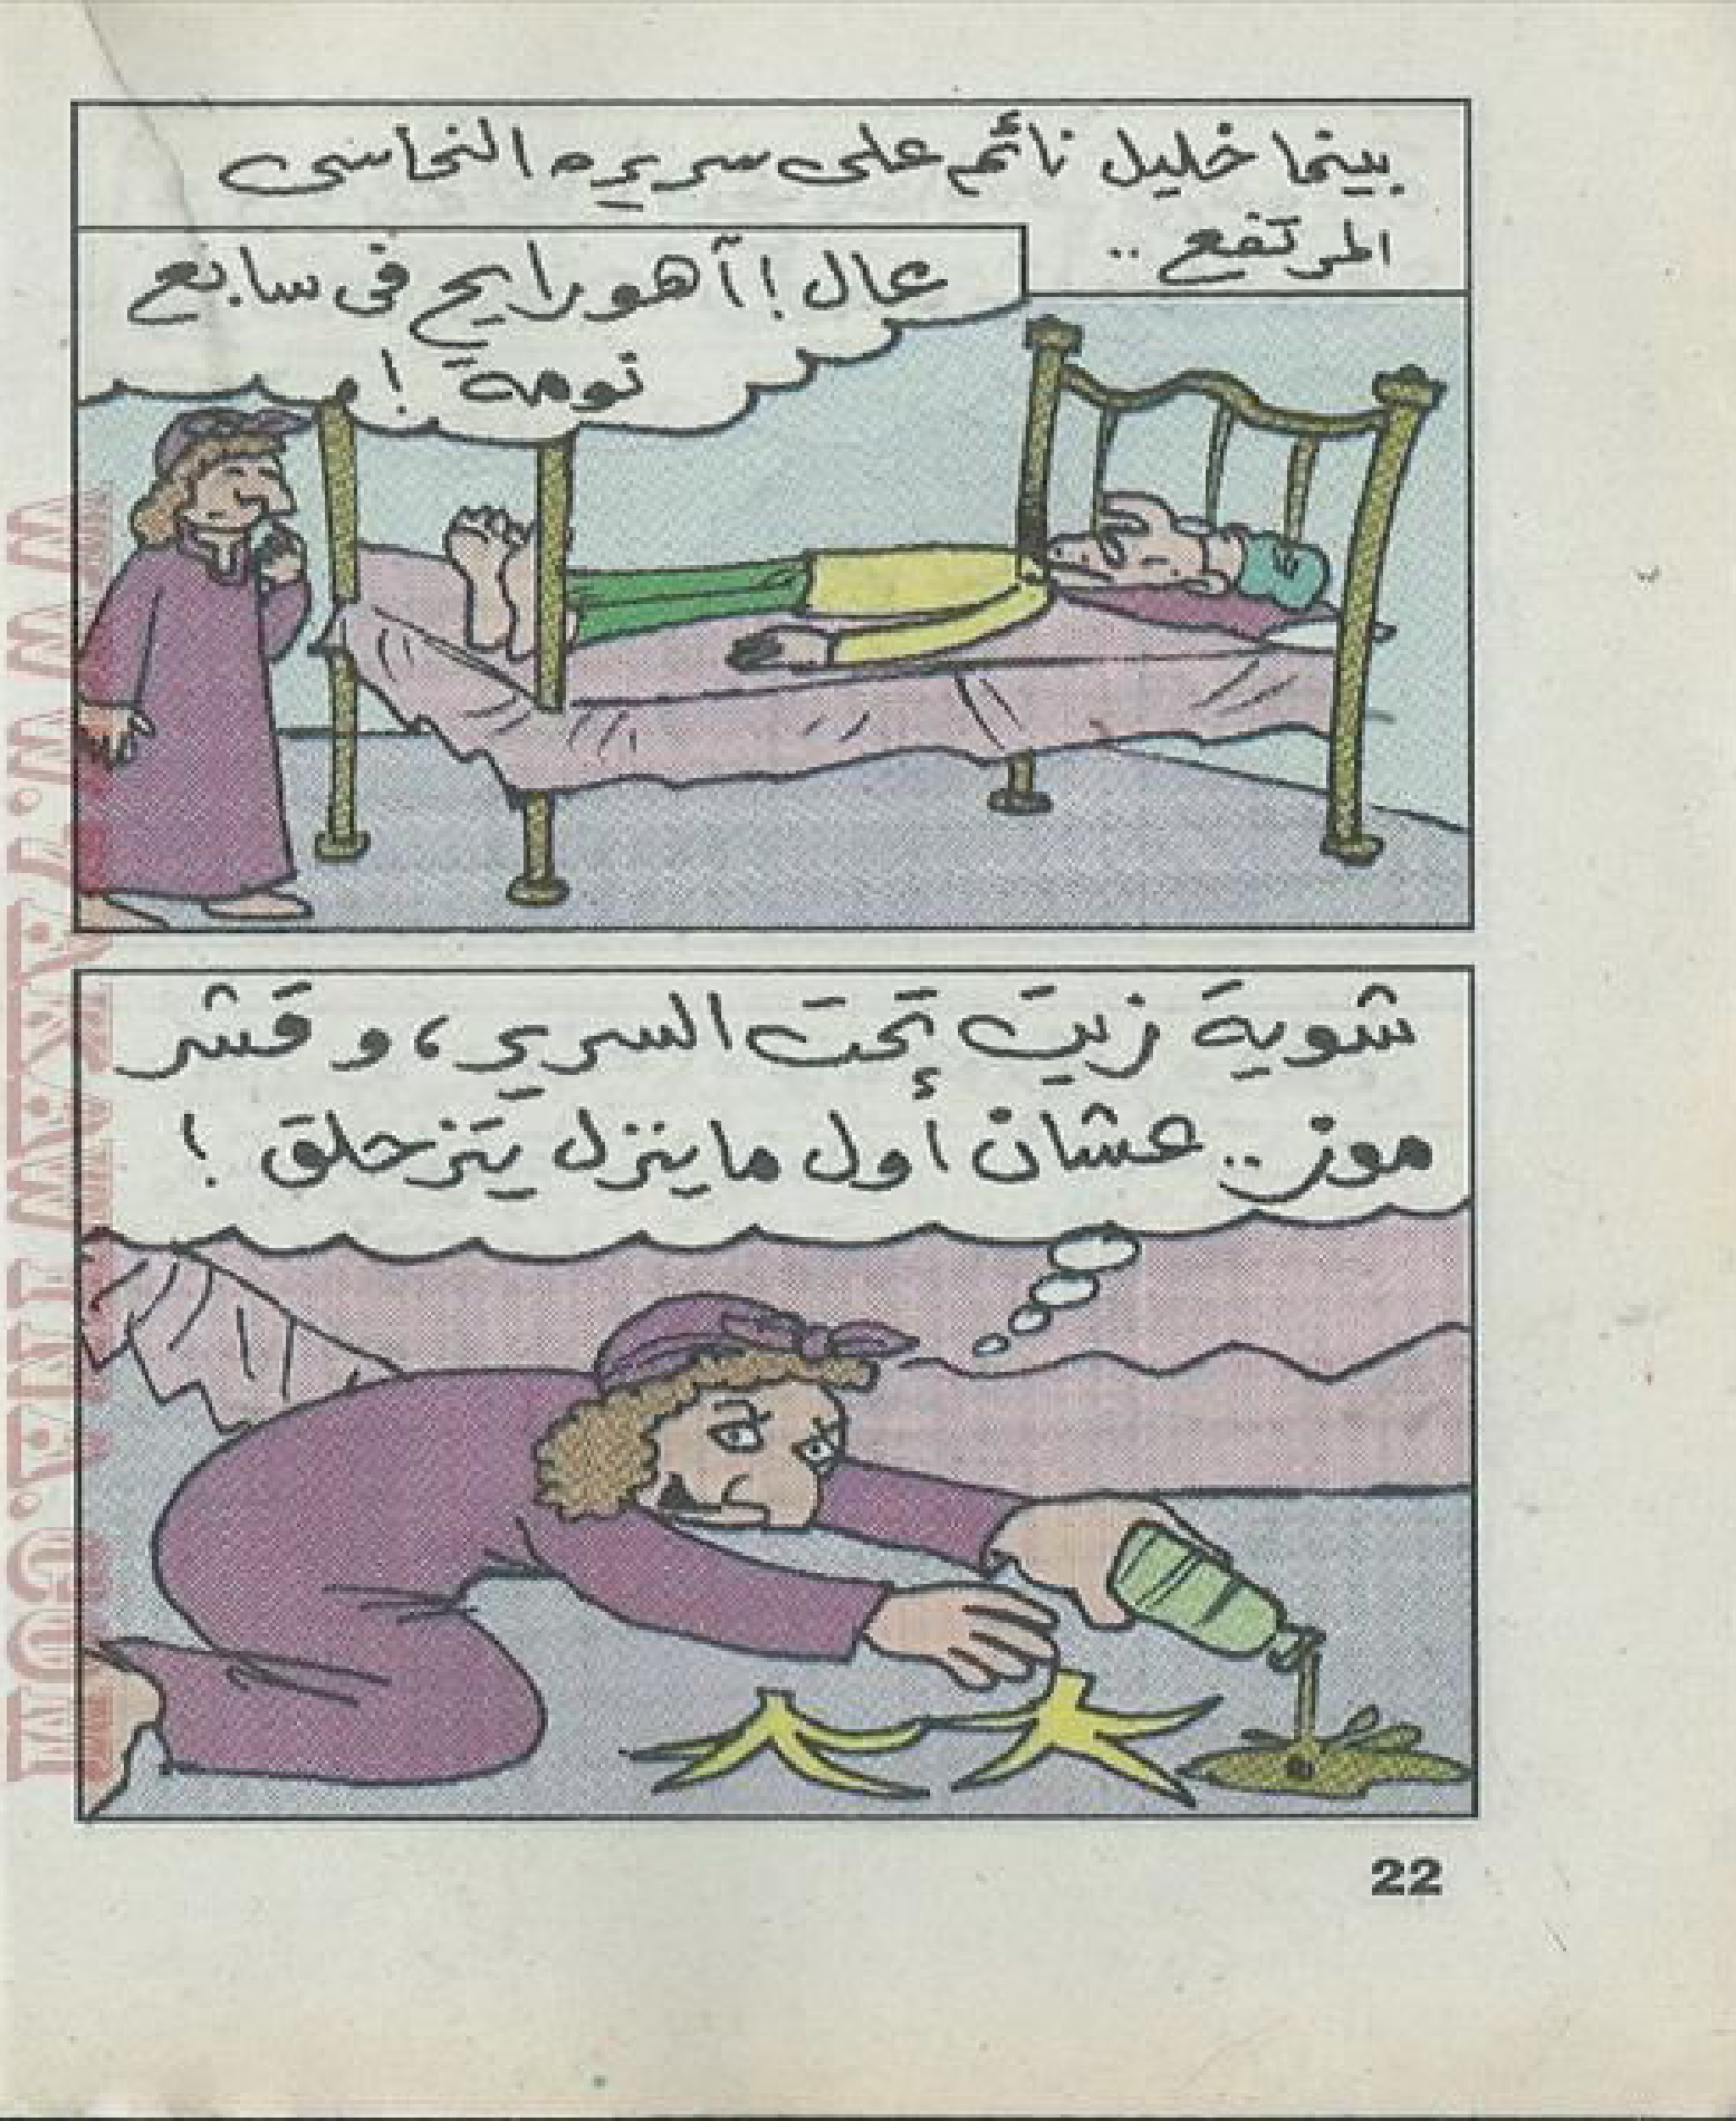 بينما خليل نائم على سريره النحاسى
المرتفع ..
عال ! آهو رايح فى سابع
نومة !
شوية زيت تحت السرير ، و قشر
موز .. عشان أول ما ينزل يتزحلق !
22